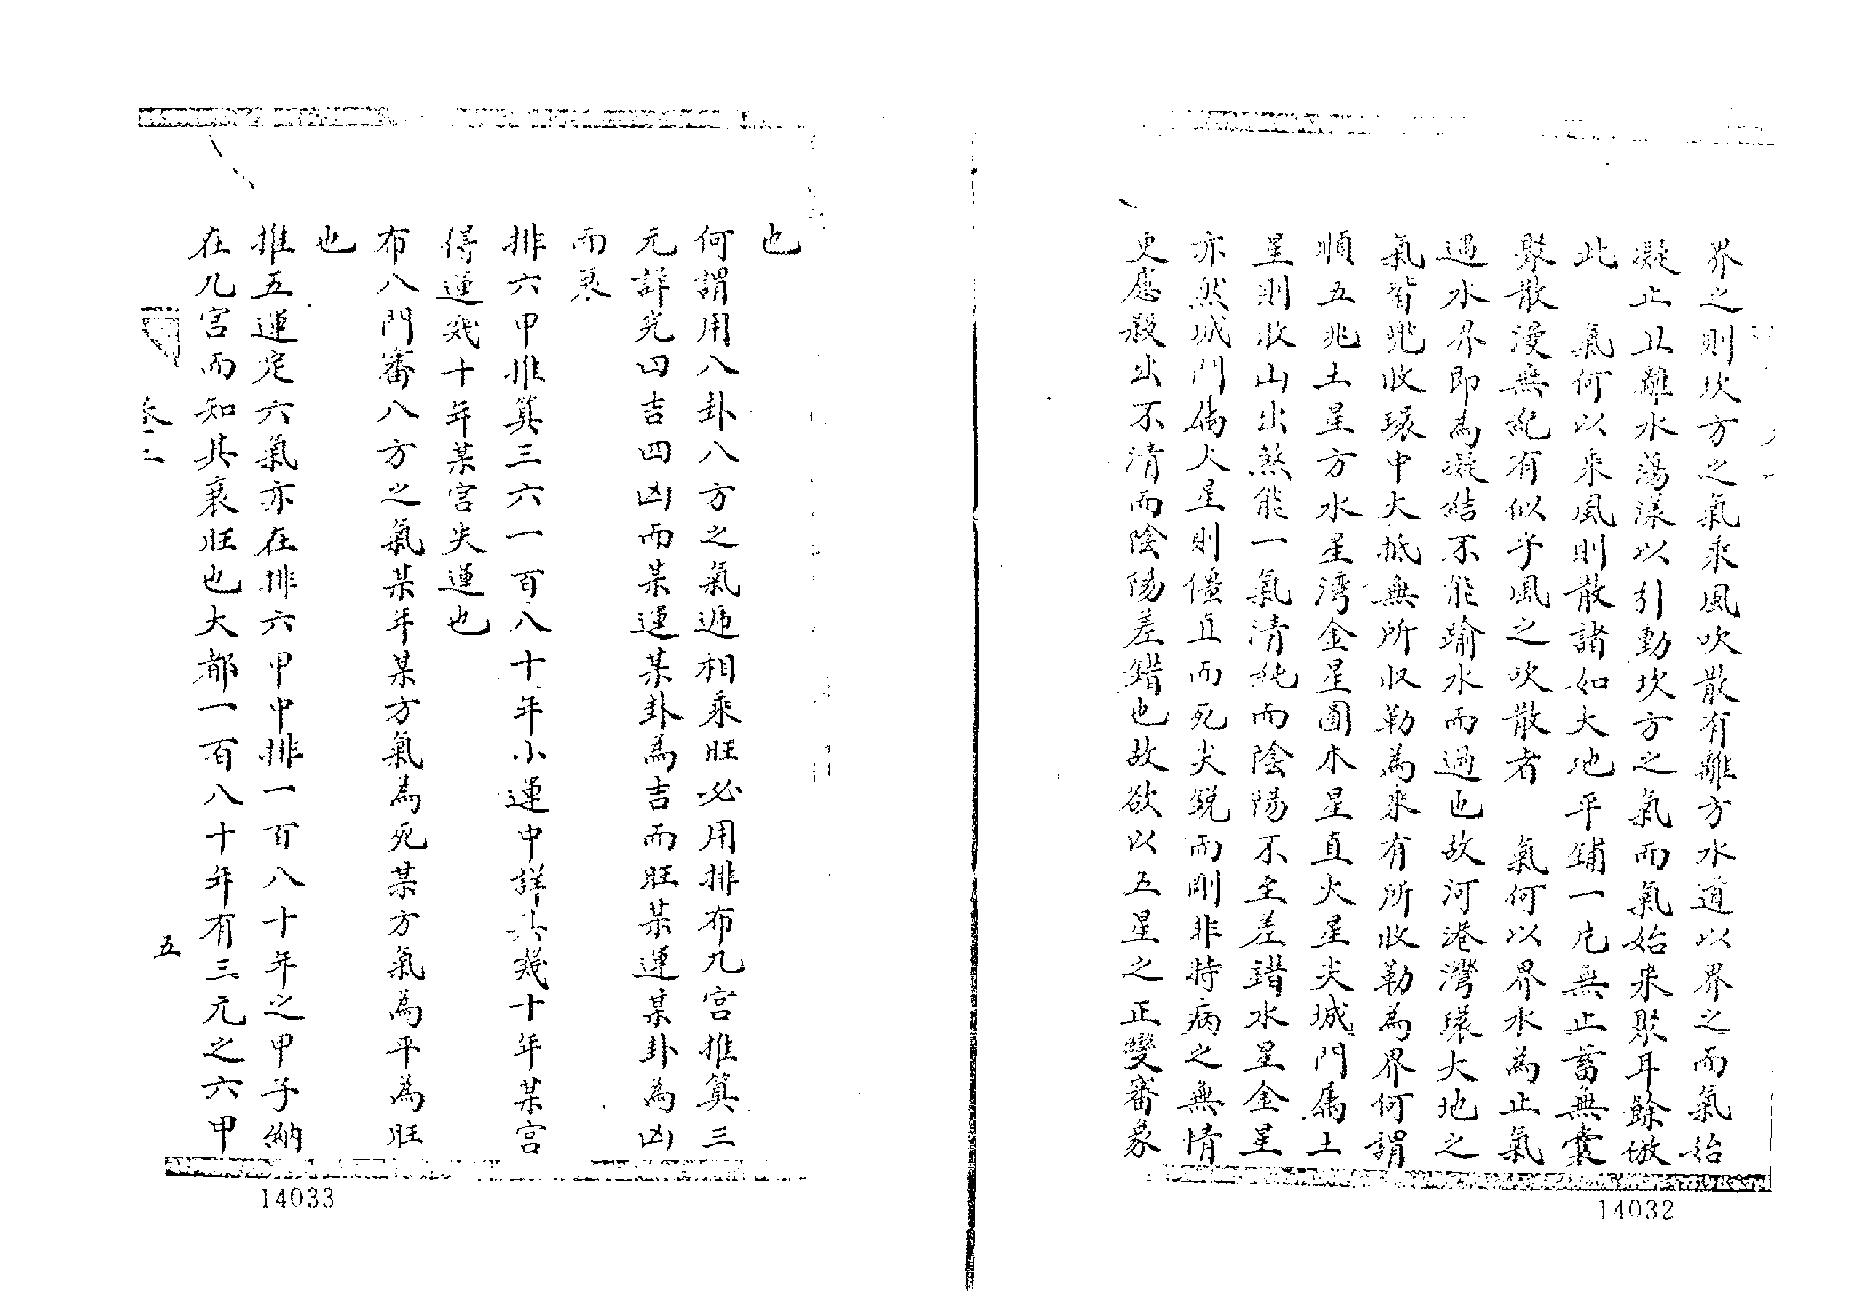 界之則坎方之氣乘風吹散有離方水道以界之而氣始
凝止且離水蕩漾以引動坎方之氣而氣始來聚耳餘倣
此　氣何以來風則散諸如大地平鋪一片無止蓄無囊
聚散漫無紀有似乎風之吹散者　氣何以界水為止氣
遇水界即為凝結不能踰水而過也故河港灣環大地之
氣皆兜收環中大抵無所収勒為來有所收勒為界何謂
順五兆土星方水星湾金星圓木星直火星尖城門屬土
星則收山出煞能一氣清純而陰陽不主差錯水星金星
亦然城門屬火星則僵直而死尖銳而剛非特病之無情
更應殺出不清而陰陽差錯也故欲以五星之正變審象
也
何謂用八卦八方之氣遞相乘旺必用排布九宮推算三
元詳光四吉四凶而某運某卦為吉而旺某運某卦為凶
而衰
排六甲推算三六一百八十年小運中詳其幾十年某宮
得運幾十年某宮失運也
布八門審八方之氣某年某方氣為死某方氣為平為旺
也
推五運定六氣亦在排六甲中排一百八十年之甲子納
在九宮而知其衰旺也大都一百八十年有三元之六甲
卷二
五
14033
14032